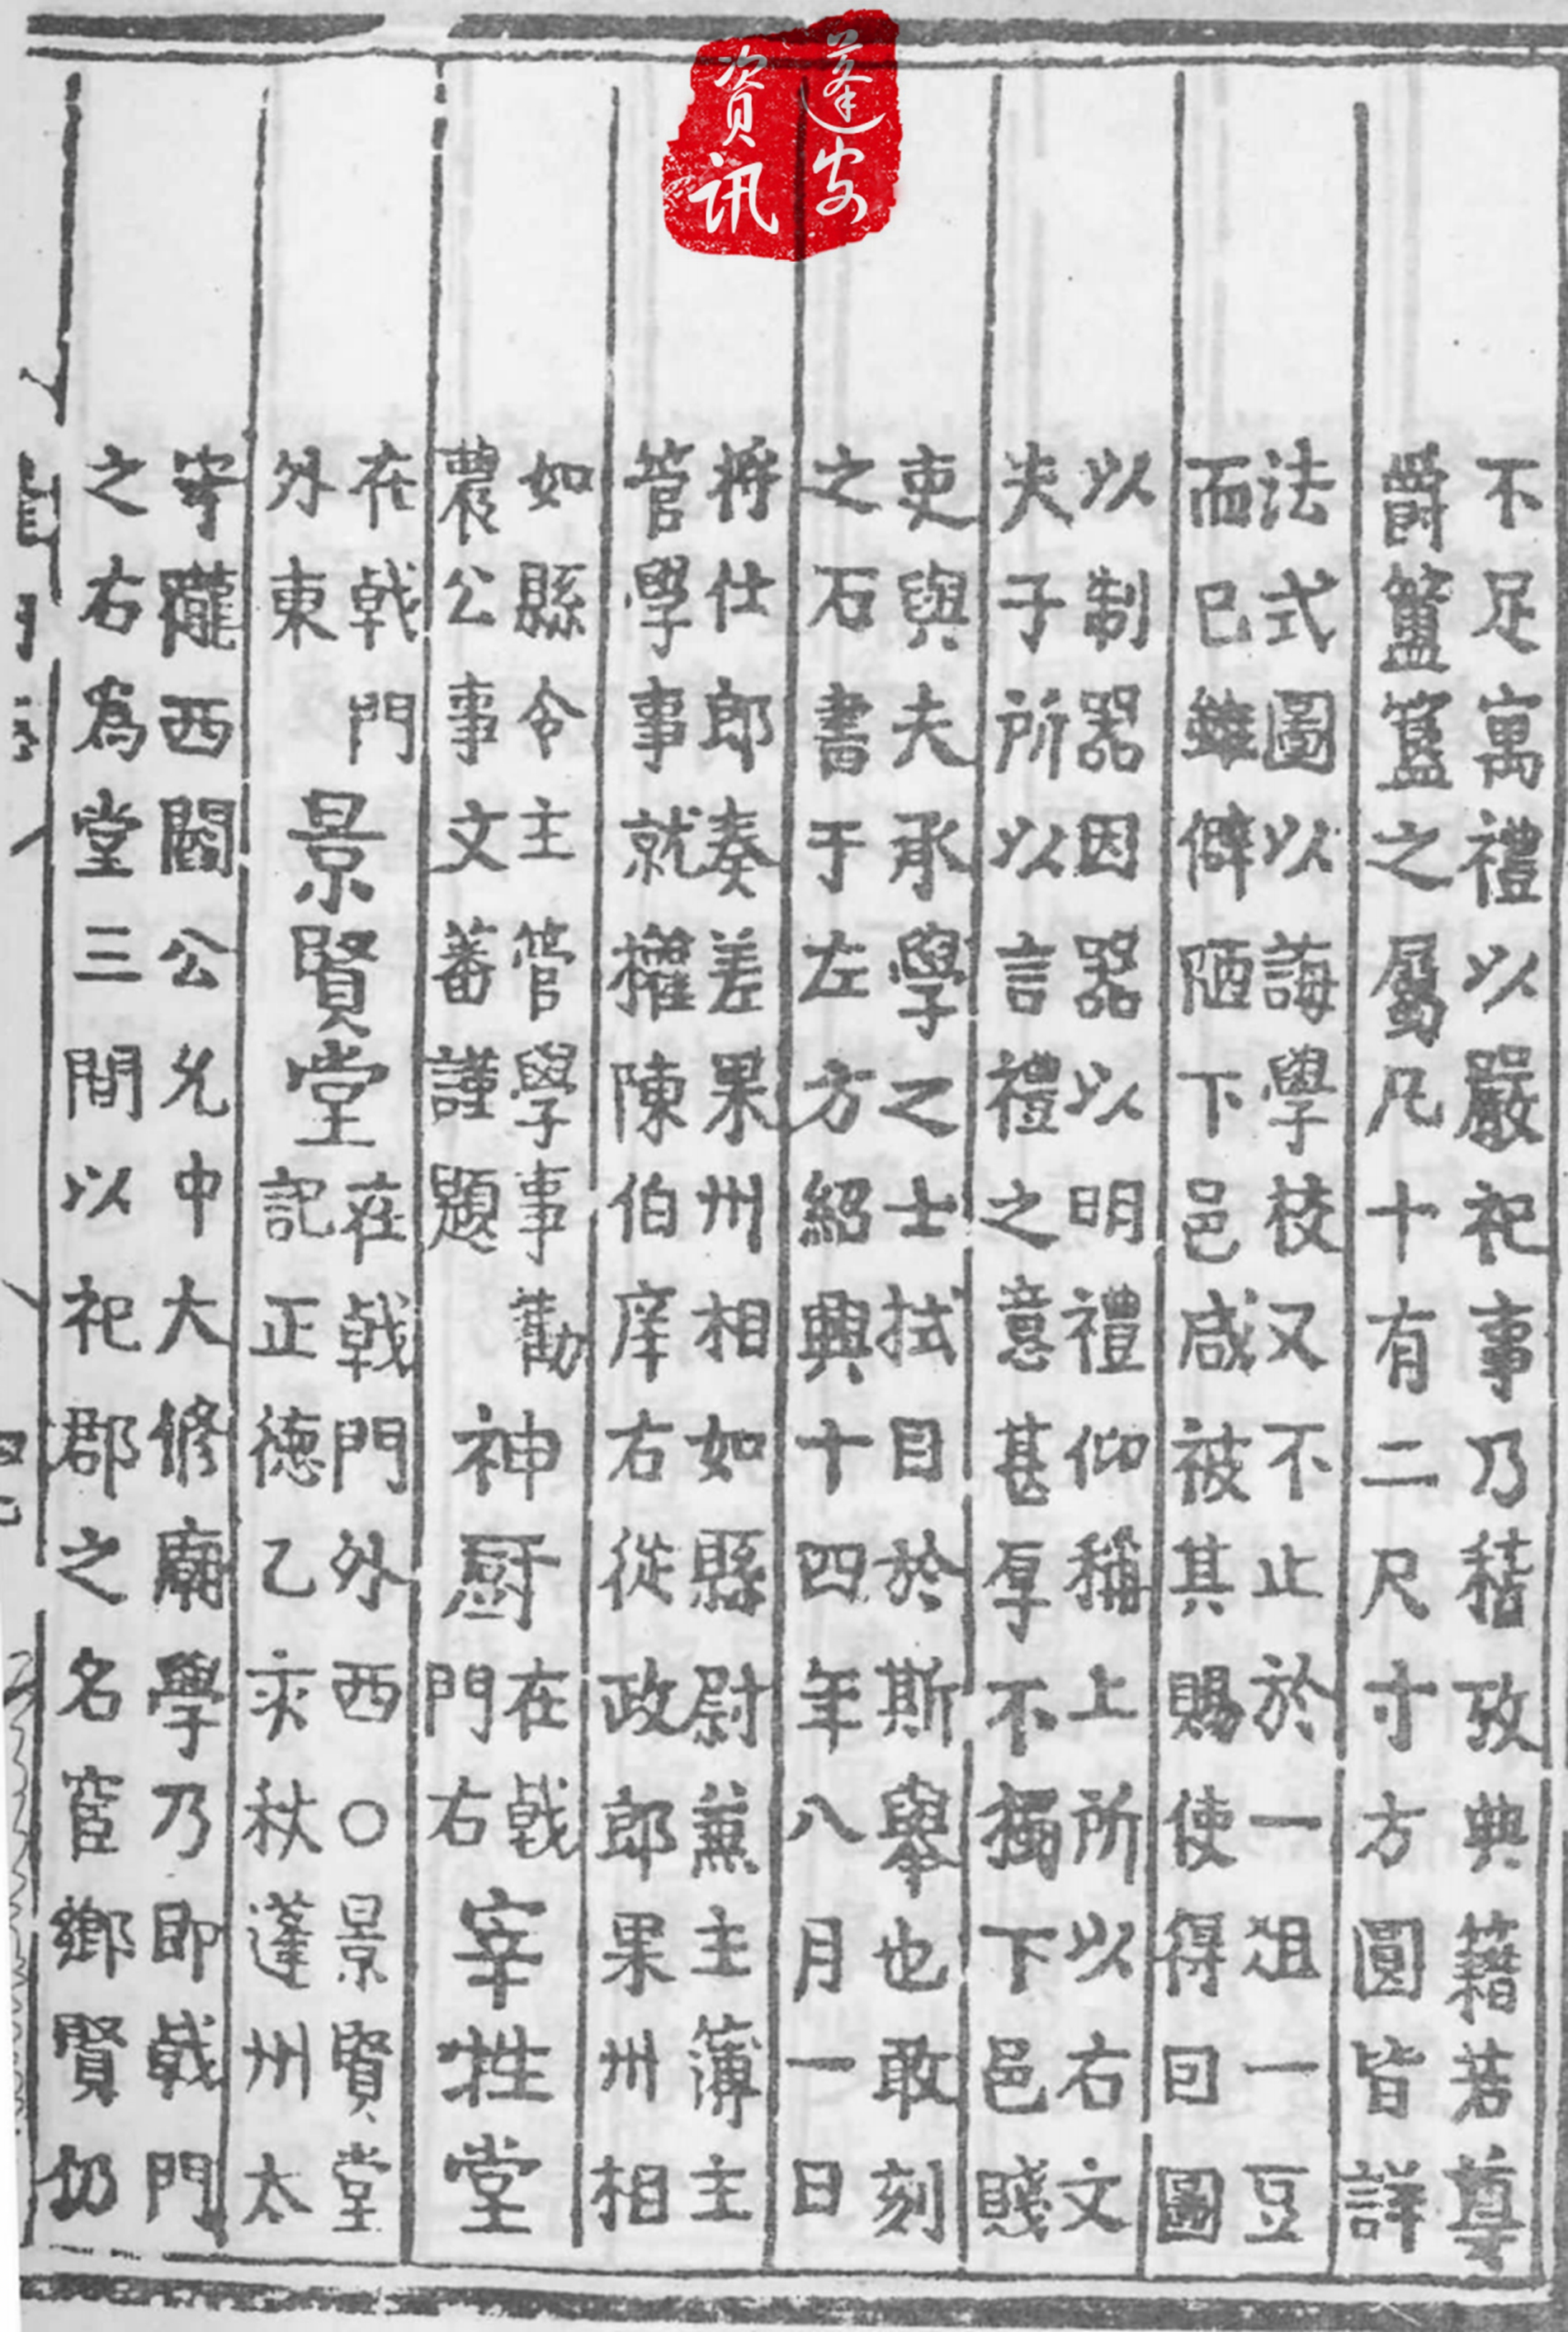 蓬安
資訊
不足寓禮以嚴祀事乃稽攷典籍若尊
爵簠簋之屬凡十有二尺寸方圓皆詳
法式圖以誨學校又不止於一俎一豆
而已雖僻陋下邑咸被其賜使得囙圖
以制器因器以明禮仰稱上所以右文
夫子所以言禮之意甚厚不獨下邑賤
吏與夫承學之士拭目於斯舉也敢刻
之石書于左方紹興十四年八月一日
將仕郎奏差果州相如縣尉兼主簿主
管學事就權陳伯庠右從政郎果州相
如縣令主管學事勸
農公事文蕃謹題
神厨
在戟
門右
宰牲堂
在戟門
外東
景賢堂
在戟門外西○景賢堂
記正德乙亥秋蓬州太
守隴西閻公允中大修廟學乃即戟門
之右為堂三間以祀郡之名宦鄉賢仍